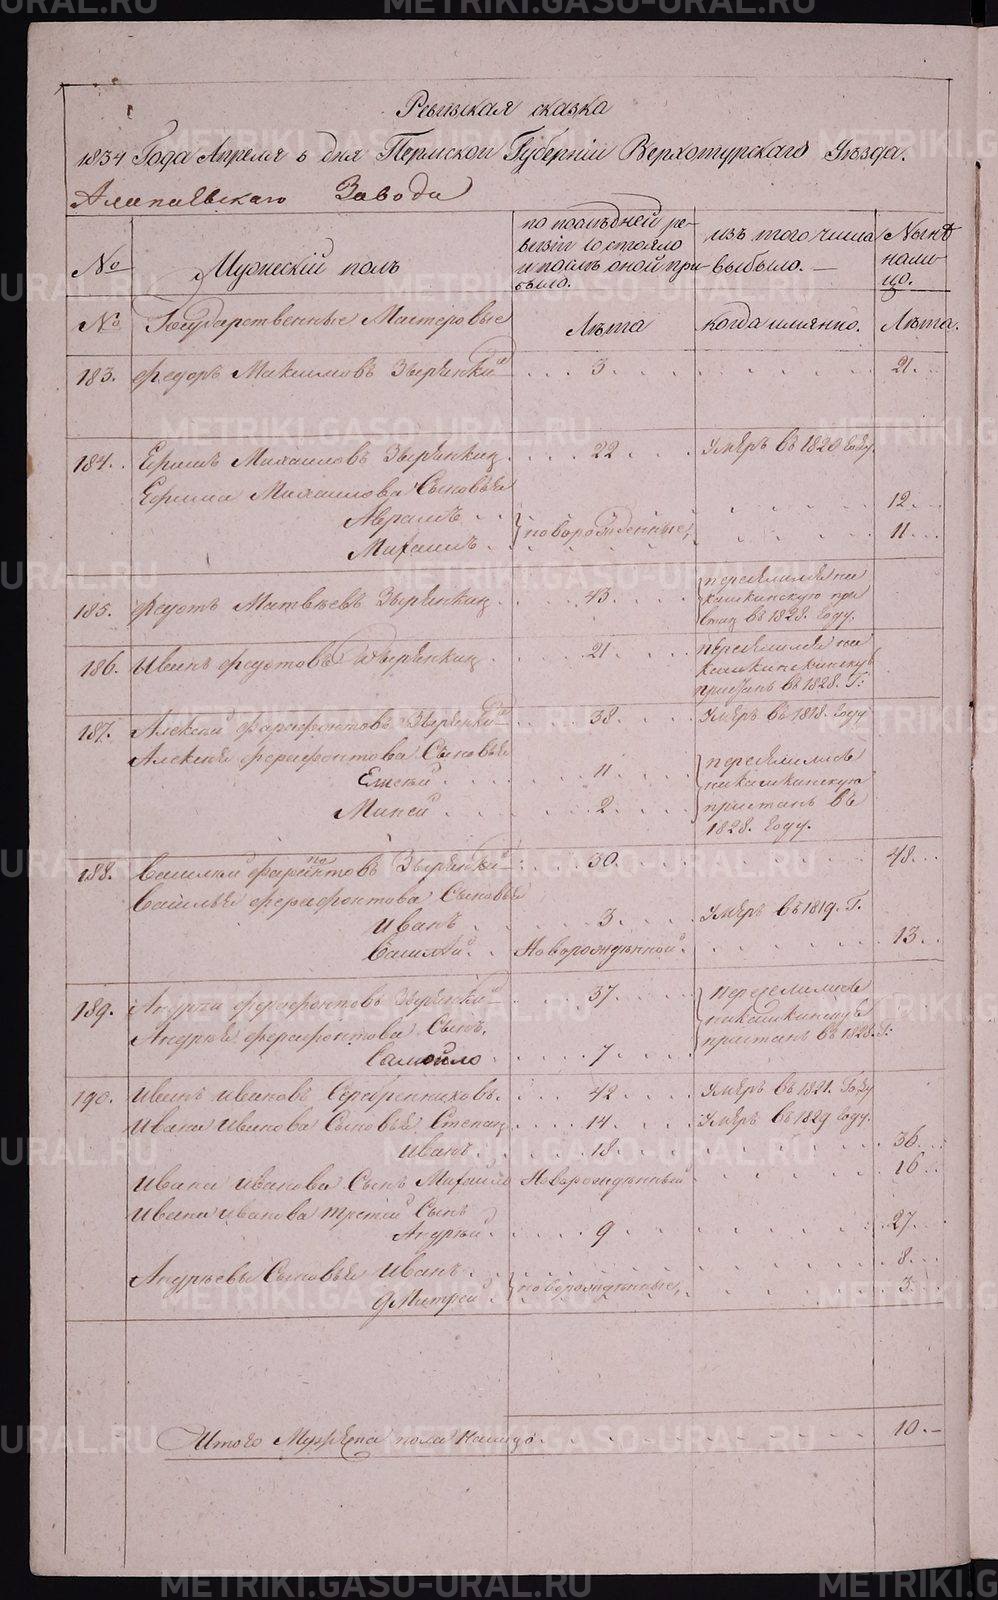 Ревизская сказка
1834 Года Апреля 6 дня Пермской Губерніи Верхотурскаго Уѣзда.
Алапаевскаго Завода
№ Мужескій полъ
по послѣдней ревизіи состояло и послѣ оной прибыло.
изъ того числа выбыло.
Нынѣ на лицо.
№ Государственные Мастеровые Лѣта когда имянно. Лѣта.
183. Федоръ Максимовъ Зырянкинъ 3 21
184. Ефимъ Михаиловъ Зырянкинъ 22 умеръ въ 1820 году
Ефима Михаилова Сыновья
Авраамъ 12
Михаилъ новорожденные, 11
185. Федотъ Матвѣевъ Зырянкинъ 43 переселился на кашкинскую пристань въ 1828. Году.
186. Иванъ Федотовъ Зырянкинъ 21 переселился на кашкинскую пристань въ 1828. Г:
187. Алексѣй Ферафонтовъ Зырянкинъ 38 умеръ въ 1818. Году
Алексѣя Ферафонтова Сыновья
Елисѣй 11 переселились
на кашкинскую
Миней 2 пристань въ
1828. Году.
188. Василей Ферафонтовъ Зырянкинъ 30 48
Василья Ферафонтова Сыновья
Иванъ 3 умеръ въ 1819. Г.
Василій Новорожденной 13
189. Андрей Ферафонтовъ Зырянкинъ 37 переселились
Андрея Ферафонтова Сынъ, на кашкинскую
пристань въ 1828. Г:
Самойло 7
190. Иванъ Ивановъ Серебренниковъ 42 умеръ въ 1821. Году
Ивана Иванова Сыновья Степанъ 14 умеръ въ 1829 Году.
Иванъ 18 36
Ивана Иванова Сынъ Михаило Новорожденный 16
Ивана Иванова третій Сынъ
Андрей 9 27
Андреевы Сыновья Иванъ 8
Дмитрей новорожденные, 3
Итого Мужеска пола на лицо 10
METRIKI.GASO-URAL.RU